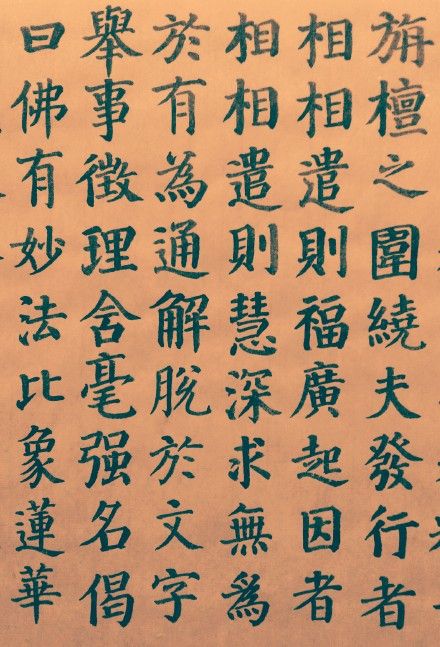 旃檀之圍繞夫發行者
相相遣則福廣起因者
相相遣則慧深求無爲
於有為通解脫於文字
舉事徵理含毫强名偈
曰佛有妙法比象蓮華